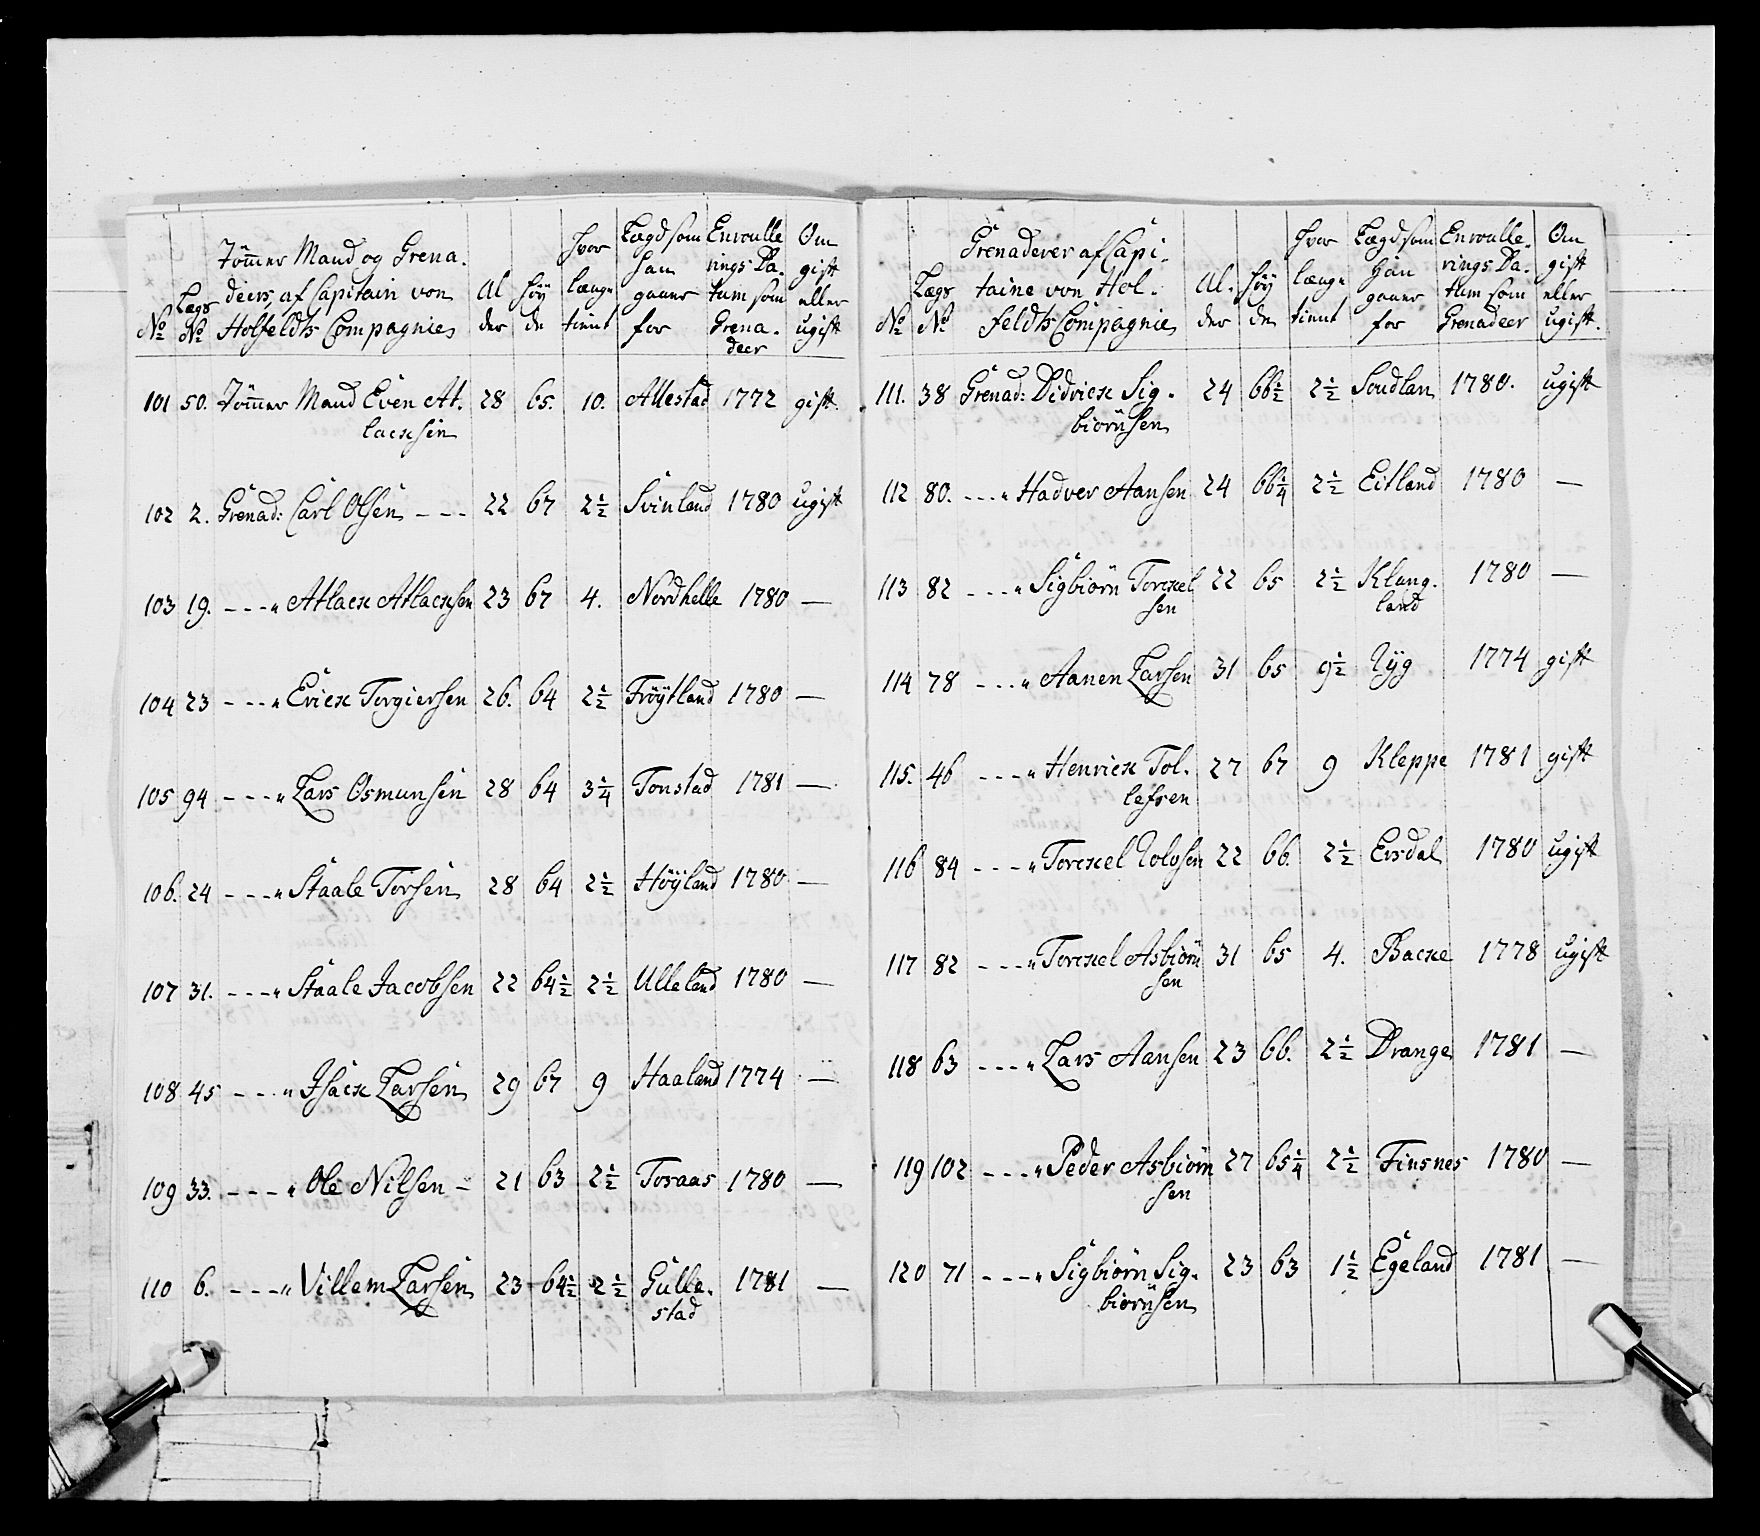 No Lægs No Tömer Mand og Grena. deers af Capitain von Holfeldts Compagnie Al der Höÿ de hvor længe tient Lægd som han gaaer for Enroulle rings Da. tum som Grena. deer Om gift eller ugift
101 50. Tömer Mand Even At. 28 65. 10. Allestad 1772 gift.
lacksen
102 2. Grenad: Carl Olsen --- 22 67 2½ Svinland 1780 ugift
103 19. ---" Atlack Atlacksen 23 67 4. Nordhelle 1780 —
104 23 ---" Erick Torgiersen 26. 64 2½ Fröÿtland 1780 —
105 94 ---" Lars Osmunsen 28 64 3¼ Tonstad 1781 —
106. 24 ---" Staale Torsen 28 64 2½ Höÿland 1780 —
107 31. ---" Staale Jacobsen 22 64½ 2½ Ulleland 1780 —
108 45 ---" Isack Larsen 29 67 9 Haaland 1774 —
109 33. ---" Ole Nilsen - 21 63 2½ Tosaas 1780 —
110 6. ---" Villem Larsen 23 64½ 2½ Gulle. 1781 —
stad
No Lægs No Grenaderer af Capi. taine von Hol. feldts Compagnie Al. der Höÿ de hvor længe tient Lægd som han gaaer for Enroulle. rings Da. tum som Grenadeer Om gift eller ugift.
111. 38 Grenad: Didrick Sig. 24 66½ 2½ Soudlan 1780. ugift
biörnsen
112 80. ---" Hadver Aansen 24 66¼ 2½ Eitland 1780 —
113 82 ---" Sigbiörn Torckel 22 65 2½ Klung. 1780 —
sen land
114 78 ---" Aanen Larsen 31 65 9½ 1774 gift
115. 46 ---" Henrick Tol. 27 67 9 Kleppe 1781 gift
lefsen
116 84 ---" Torckel Olovsen 22 66. 2½ Ersdal 1780 ugift
117 82 ---" Torckel Asbiörn 31 65 4. Backe 1778 ugift
sen
118 63 ---" Lars Aansen 23 66. 2½ Drange 1781 —
119 102 ---" Peder Asbiörn 27 65¼ 2½ Finsnes 1780 —
sen
120 71 ---" Sigbiörn Sig. 23 63 1½ Egeland 1781 —
biörnsen